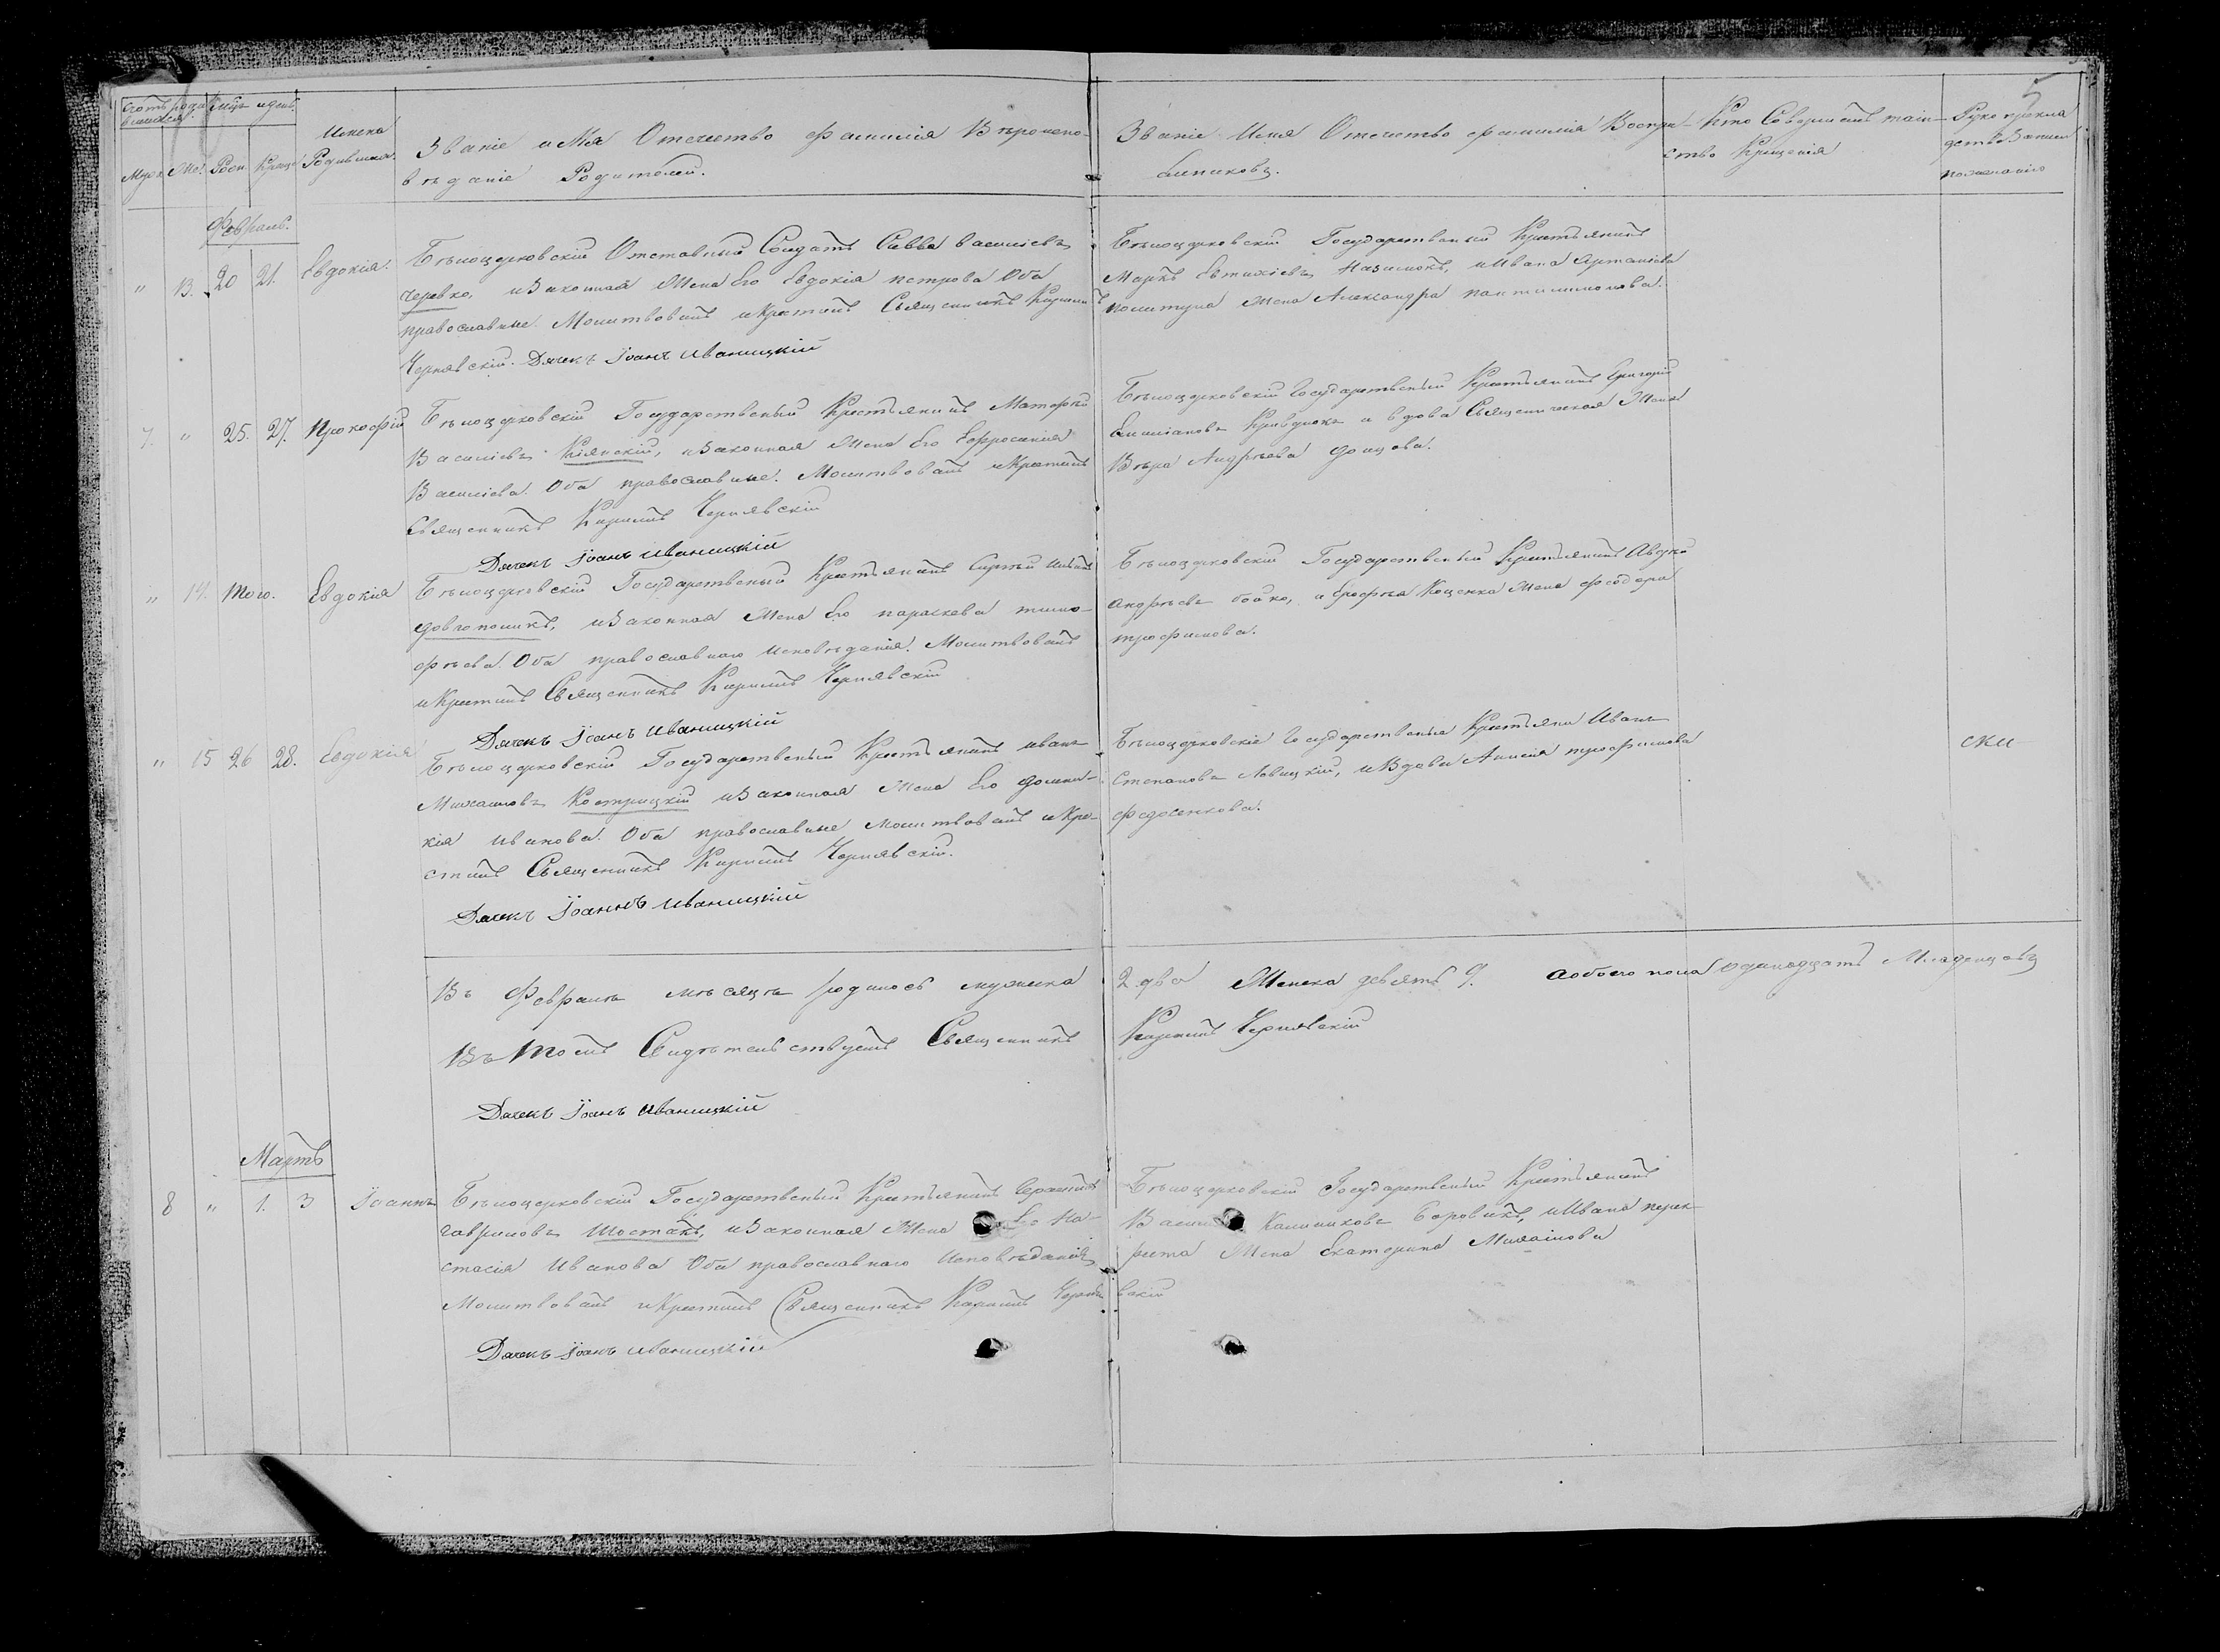 5
Мѣсяцъ и день.
Имена
Родившихся.
Званіе имя Отечество фамилія Вѣроиспо-
вѣданіе Родителей.
Званіе Имя Отечество фамилія Воспрі-
емниковъ.
Кто Совершалъ таин-
ство Крещенія
Рукоприкла
дство
по желанію
Муж. Же. Рож. Крещ.
Февраль.
" 13. 20 21. Евдокія.
Бѣлоцерковскій Отставный Солдатъ Савва Василіевъ
Черевко, изаконная Жена Его Евдокія петрова Оба
православные. Молитвовалъ икрестилъ Священникъ Кирилъ
Чернявскій. Дячекъ Іоанъ Иваницкій
Бѣлоцерковскій Государственый Крестьянинъ
Маркъ Евтихіевъ, иИвана
жена Александра пантилимонова.
7. " 25. 27. Прокофій
Бѣлоцерковскій Государственый Крестьянинъ Матфей
Василіевъ Кіянскій, изаконная Жена Его Ефросинія
Василіева. Оба православные. Молитвовалъ икрестилъ
Священникъ Кирилъ Чернявскій
Дячекъ Іоанъ Иваницкій
Бѣлоцерковскій Государственый Крестьянинъ Григорій
Емиліановъ Кривдюкъ и вдова Священическая Жена
Вѣра Андрѣева донцова.
" 14. Того. Евдокія
Бѣлоцерковскій Государственый Крестьянинъ Сергѣй
довгополикъ, изаконная Жена Его параскева тимо-
фѣева. Оба православнаго Исповѣданія. Молитвовалъ
икрестилъ Священникъ Кирилъ Чернявскій
Дячекъ Іоанъ Иваницкій
Бѣлоцерковскій Государственый Крестьянинъ
андрѣевъ бойко, и Ерофѣя Коценка Жена феодора
трофимова.
" 15 26 28. Евдокія
Бѣлоцерковскій Государственый Крестьянинъ иванъ
Михаиловъ Костріцкій изаконная Жена Его доми-
кія иванова. Оба православные молитвовалъ икре-
стилъ Священникъ Кирилъ Чернявскій.
Дячекъ Іоаннъ Иваницкій
Бѣлоцерковскіе Государственые Крестьяни Иванъ
Степановъ Левицкій, иВдова Анисія трофимова
федосенкова.
ски
Въ Февралѣ мѣсяцѣ родилось мужеска 2. два Женска девять 9. а обоего пола одинадцать Младенцовъ
Въ томъ Свидѣтельствуетъ Священникъ Кирилъ Чернявскій
Дячекъ Іоанъ Иваницкій
Мартъ
8 " 1. 3 Іоаннъ
Бѣлоцерковскій Государственый Крестьянинъ
гавриловъ Шостакъ, изаконная Жена Его На-
стасія Иванова Оба православнаго Исповѣданія
Молитвовалъ икрестилъ Священникъ Кирилъ Чернявскій
Дячекъ Іоанъ Иваницкій
Бѣлоцерковскій Государственый Крестьянинъ
Калиниковъ Боровикъ, иИвана перех
реста Жена Екатерина Михаилова